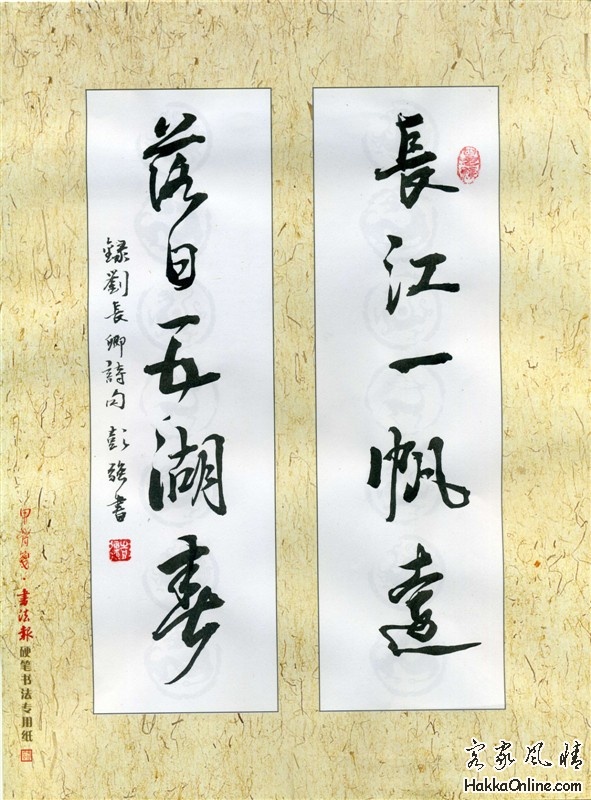 長江一帆遠
落日五湖春
錄劉長卿詩句 彭強書
書法報
硬笔书法专用纸
客家风情
HakkaOnline.com